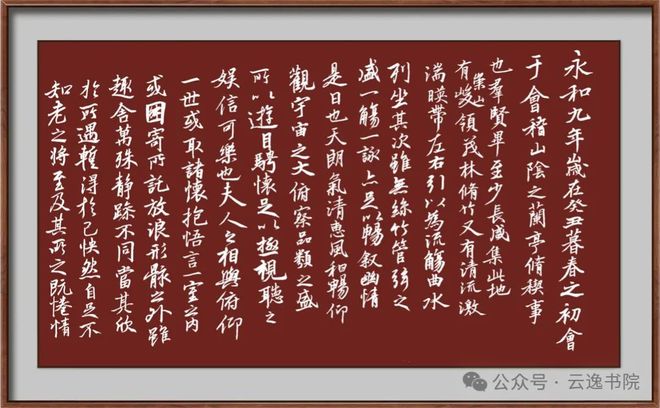 永和九年歲在癸丑暮春之初會
于會稽山陰之蘭亭脩稧事
也羣賢畢至少長咸集此地
有崇山峻領茂林脩竹又有清流激
湍暎帶左右引以為流觴曲水
列坐其次雖無絲竹管弦之
盛一觴一詠亦足以暢叙幽情
是日也天朗氣清惠風和暢仰
觀宇宙之大俯察品類之盛
所以遊目騁懷足以極視聽之
娛信可樂也夫人之相與俯仰
一世或取諸懷抱悟言一室之內
或因寄所託放浪形骸之外雖
趣舍萬殊静躁不同當其欣
於所遇蹔得於己快然自足不
知老之將至及其所之既惓情
公众号·云逸书院